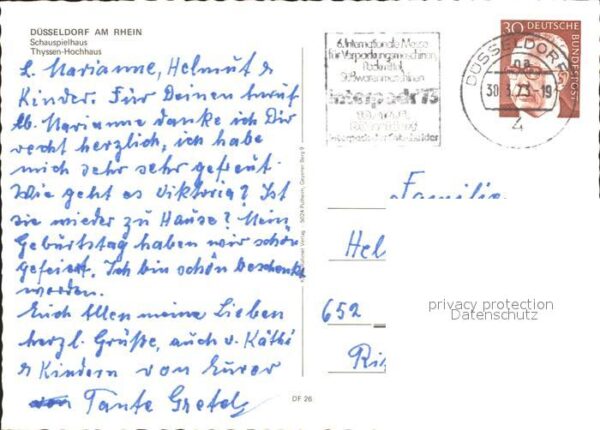 DÜSSELDORF AM RHEIN
Schauspielhaus
Thyssen-Hochhaus
L. Marianne, Helmut &
Kinder. Für Deinen
lb. Marianne danke ich Dir
recht herzlich, ich habe
mich sehr sehr gefreut.
Wie geht es Viktoria? Ist
sie wieder zu Hause? Mein
Geburtstag haben wir schön
gefeiert. Ich bin schön beschenkt
worden.
Euch Allen meine Lieben
herzl. Grüße, auch v. Käthi
& Kindern von Eurer
Tante Gretel
DF 26
6. Internationale Messe
für Verpackungsmaschinen,
Packmittel,
Süßwarenmaschinen
interpack 73
30 DEUTSCHE
BUNDESPOST
DÜSSELDORF
30.3.73-19
4
Familie
Hel
652
privacy protection
Datenschutz